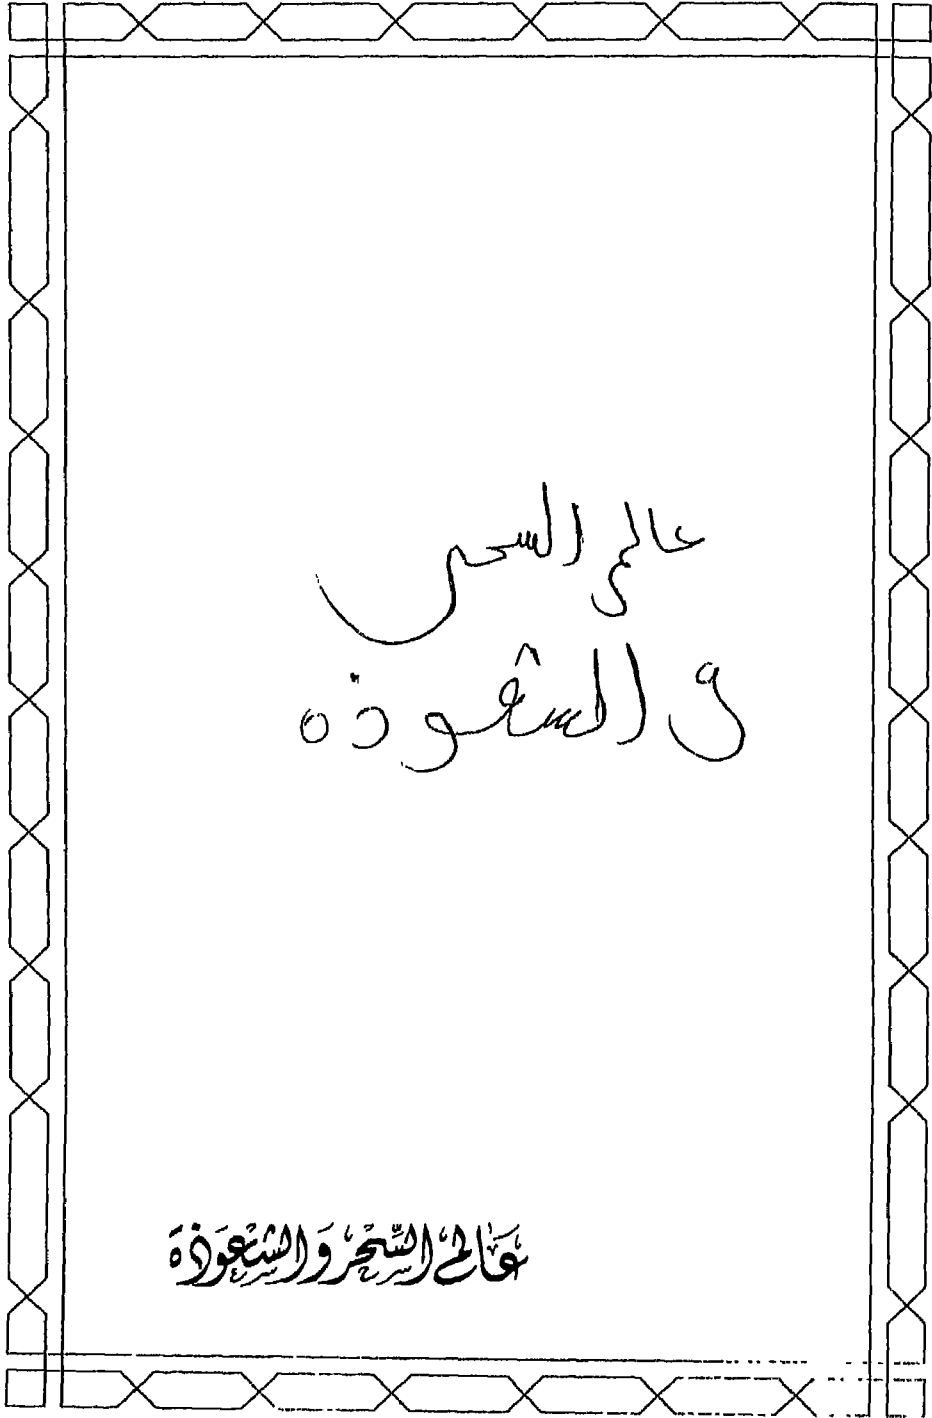 عالم السحر
و الشعوذه
عَالم السِّحْر وَالشَعْوَذَة